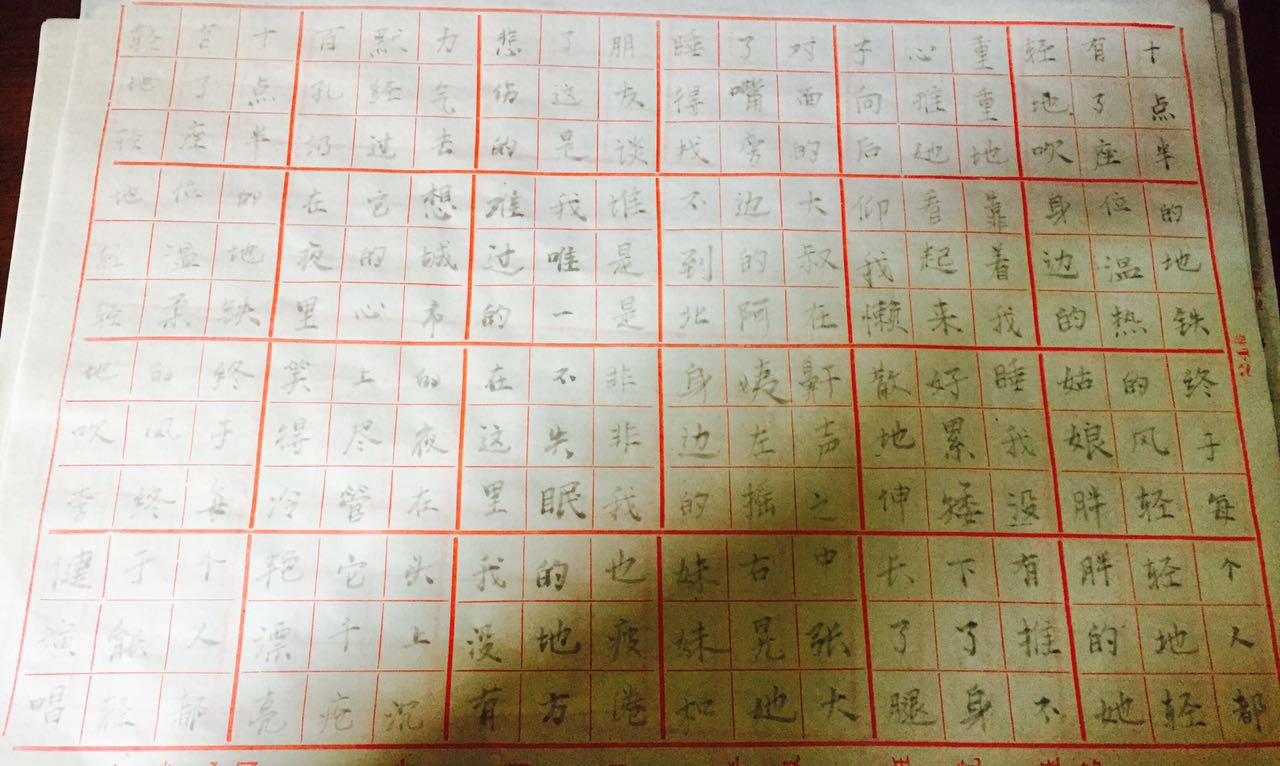 十点半的地铁终于每个人都
有了座位温热的风轻轻地轻
轻地吹身边的姑娘胖胖的她
重重地靠着我睡我没有推不
心推她看起来好累我矮下身
子向后仰我懒散地伸长了腿
对面的大叔在鼾声之中张大
了嘴旁边的阿姨左摇右晃地
睡得找不到北身边的妹妹如
朋友谈谁是是非非我也疲
了这是我唯一不失眠的地方
悲伤的难过的在这里我没有
力气去想城市的夜在头上沉
默经过它的心上尽管它千疮
百孔仍在夜里笑得冷艳漂亮
十点半的地铁终于每个人都
了座位温柔的风终于能轻
轻地轻地轻轻地吹李健演唱